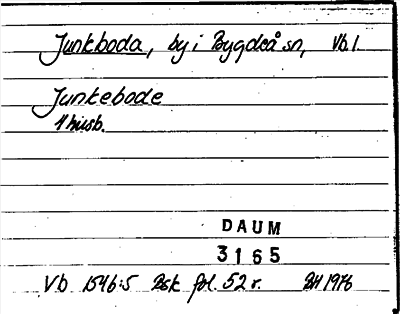 Junkboda, by i Bygdeå sn, Vb l.
Junkebode
11 husb.
DAUM
3165
Vb 1546:5 Bsk fol. 52 r. BH 1976